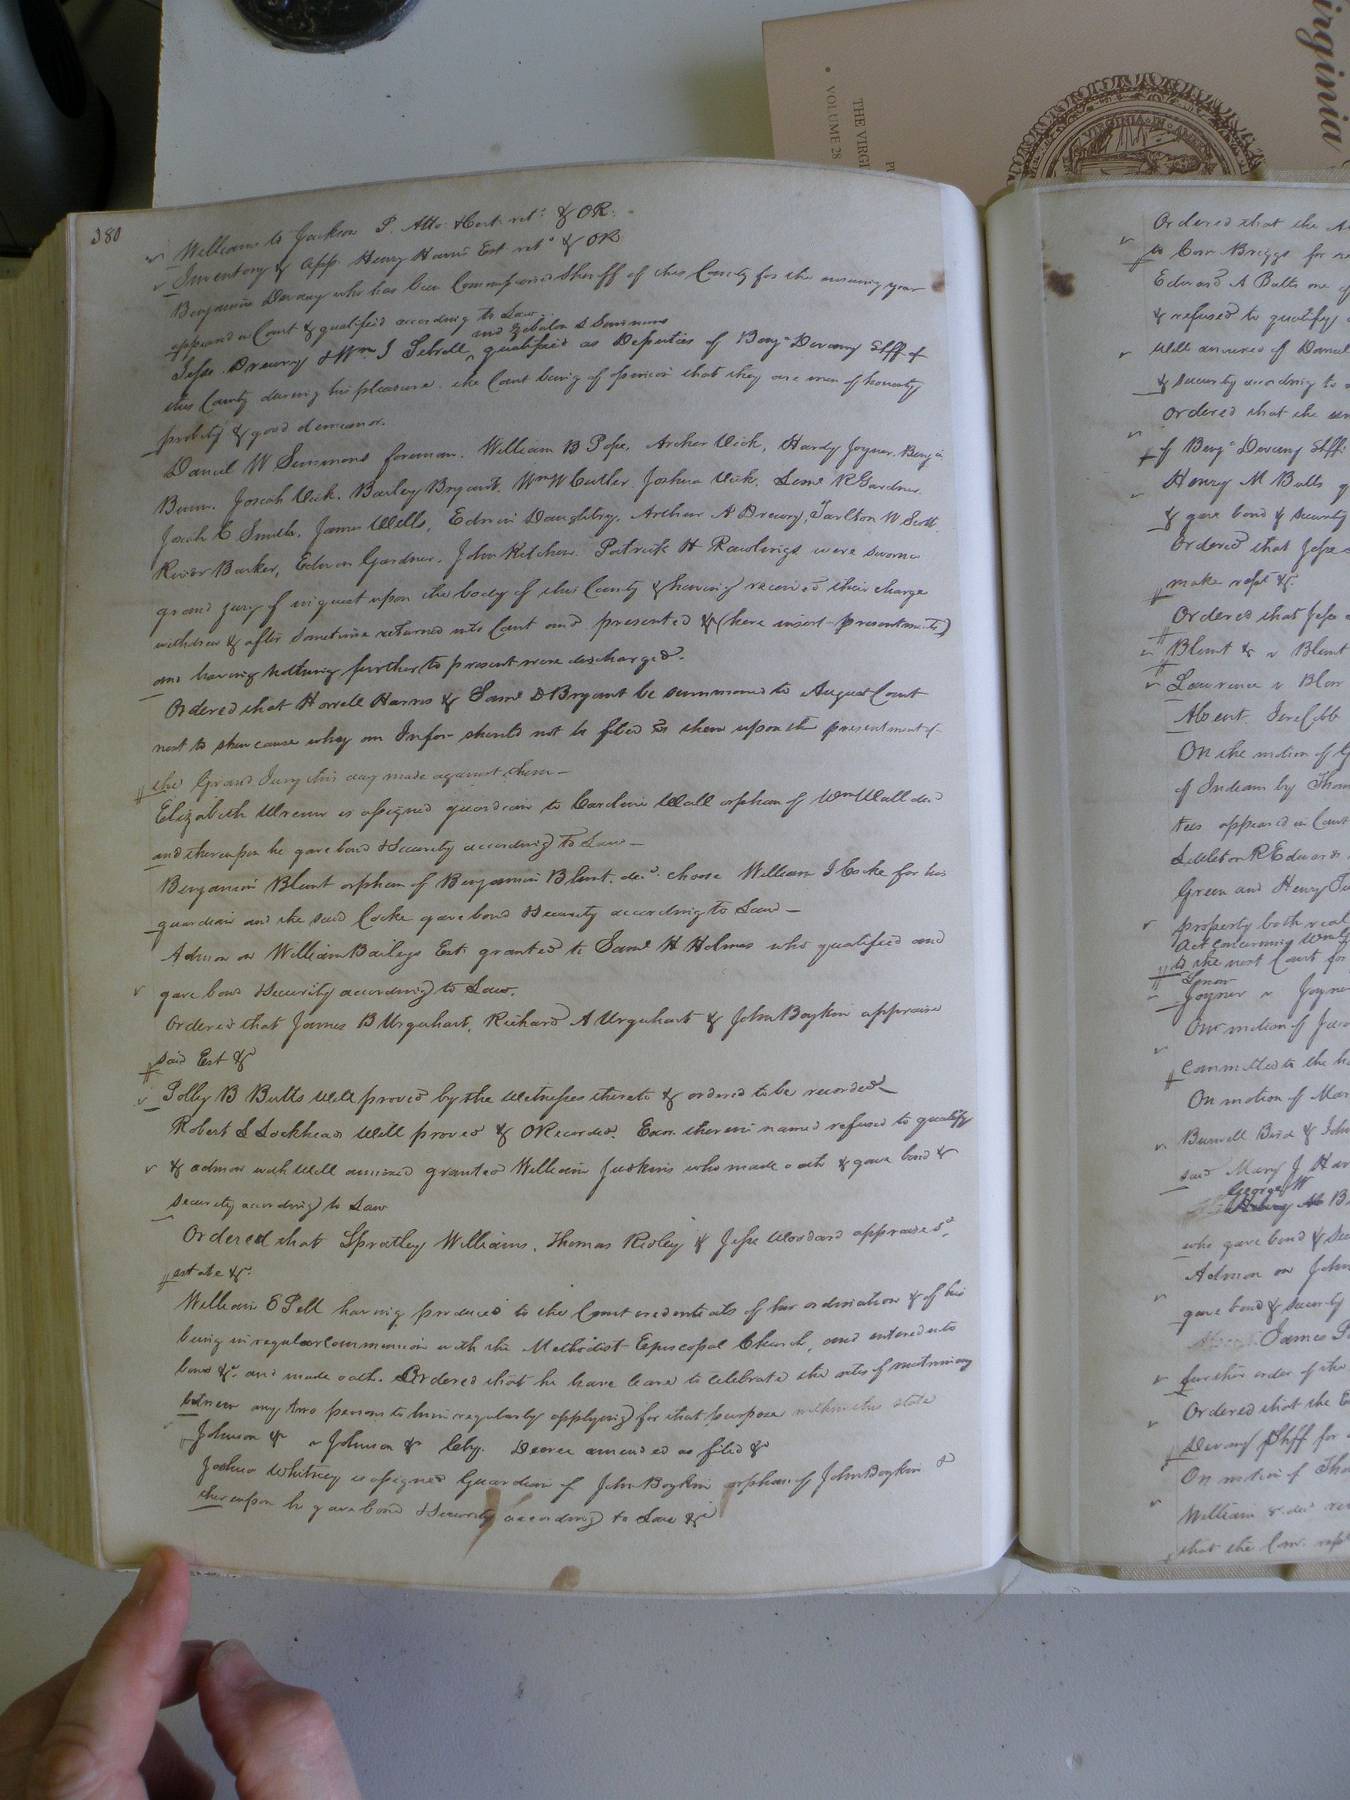 irginia
THE VIRGI
VOLUME 28
VIRGINIA IN AM
380
Williams to Jackson P. Atto & Cert. ret. & OR.
Inventory & App Henry Harris Est ret. & OR
Benjamin Devany who has been Commissioned Sheriff of this County for the ensuing year
appeared in Court & qualified according to Law.
and Zebulon S Simmons
Jesse Drewry & Wm J Sebrell qualified as Deputies of Benj. Devany Shff of
this County during his pleasure. the Court being of opinion that they are men of honesty
probity & good demeanor.
Daniel W Simmons foreman. William B Pope, Archer Vick, Hardy Joyner, Benja
Bunn. Josiah Vick. Barley Bryant. Wm W Cutler. Joshua Vick. Lem. R Gardner.
Josiah C Smith. James Wells, Edwin Daughtry. Arthur A Drewry, Tarlton W Scott
River Barker, Edwin Gardner. John Kitchen. Patrick H Rawlings were sworn
grand jury of inquest upon the body of this County & having received their charge
withdrew & after sometime returned into Court and presented & (here insert presentments)
and having nothing further to present were discharged.
Ordered that Howell Harris & Saml D Bryant be summoned to August Court
next to shew cause why an Infor. should not be filed vs them upon the presentment of
the Grand Jury this day made against them —
Elizabeth Wrenn is assigned guardian to Caroline Wall orphan of Wm Wall decd
and thereupon he gave bond & Security according to Law —
Benjamin Blunt orphan of Benjamin Blunt. decd. choose William J Cocke for his
guardian and the said Cocke gave bond & Security according to Law —
Admon on William Baileys Est. granted to Saml H Holmes who qualified and
gave bond & Security according to Law.
Ordered that James B Urquhart, Richard A Urquhart & John Boykin appraise
said Est &c
Polly B Butts Will proved by the Witnesses thereto & ordered to be recorded
Robert S Lockhead Will proved & ORecorded. Exor. therein named refused to qualify
& admon with Will annexed granted William Judkins who made oath & gave bond &
security according to Law
Ordered that Spratley Williams, Thomas Ridley & Jesse Woodard appraise sd
estate &c.
William E Pell having produced to the Court credentials of his ordination & of his
being in regular Communion with the Methodist Episcopal Church, and entered into
bond &c. and made oath. Ordered that he have leave to celebrate the rites of matrimony
between any two persons to him regularly applying for that purpose within this state
Johnson &c v Johnson &c Chy. Decree amended as filed &c
Joshua Whitney is assigned Guardian of John Boykin orphan of John Boykin d
thereupon he gave bond & Security according to Law &c
Ordered that the
to Corn Briggs for
Edward A Batts one of
& refused to qualify
Will annexed of Daniel
& security according to
Ordered that the
of Benj. Devany Shff
Henry M Butts
& gave bond & security
Ordered that Jesse
make report &c
Ordered that Jesse
Blunt & v Blunt
Lawrence v Blow
Absent
On the motion of
of Indians by Thom
tees appeared in Court
Littleton R Edwards
Green and Henry
property both real
Act concerning
to the next Court for
Joyner v Joyner
On motion of
Committed to the
On motion of Mar
Burwell Bird & John
said Mary J Har
George W
who gave bond & sec
Admon on John
gave bond & security
James
further order of the
Ordered that the
Devany Shff for
On motion of Tho
William
that the Com. rep